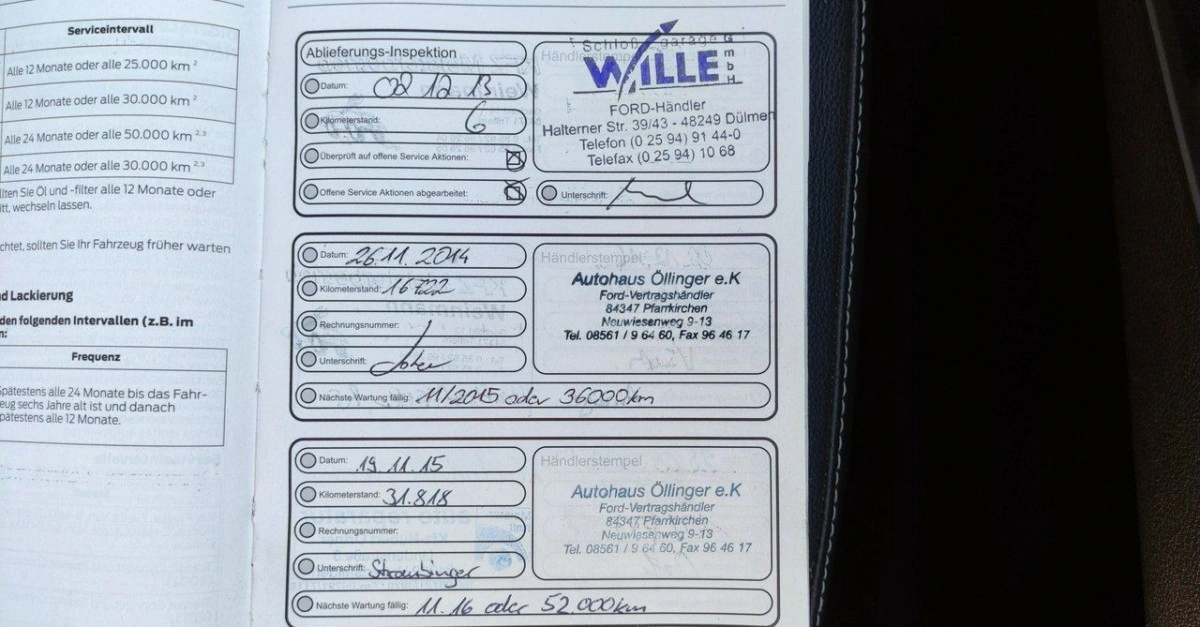 Serviceintervall
Alle 12 Monate oder alle 25.000 km ²
Alle 12 Monate oder alle 30.000 km ²
Alle 24 Monate oder alle 50.000 km ²·³
Alle 24 Monate oder alle 30.000 km ²·³
llten Sie Öl und -filter alle 12 Monate oder
itt, wechseln lassen.
chtet, sollten Sie Ihr Fahrzeug früher warten
nd Lackierung
den folgenden Intervallen (z.B. im
n:
Frequenz
Spätestens alle 24 Monate bis das Fahr-
eug sechs Jahre alt ist und danach
pätestens alle 12 Monate.
Ablieferungs-Inspektion
Datum: 02 12 13
Kilometerstand: 6
Überprüft auf offene Service Aktionen:
Offene Service Aktionen abgearbeitet:
Händlerstempel
Schloßgarage GmbH
WILLE
FORD-Händler
Halterner Str. 39/43 - 48249 Dülmen
Telefon (0 25 94) 91 44-0
Telefax (0 25 94) 10 68
Unterschrift:
Datum: 26.11.2014
Kilometerstand: 16722
Rechnungsnummer: /
Unterschrift:
Händlerstempel
Autohaus Öllinger e.K
Ford-Vertragshändler
84347 Pfarrkirchen
Neuwiesenweg 9-13
Tel. 08561 / 9 64 60, Fax 96 46 17
Nächste Wartung fällig: 11/2015 oder 36000km
Datum: 19.11.15
Kilometerstand: 31.818
Rechnungsnummer:
Unterschrift: Straubinger
Händlerstempel
Autohaus Öllinger e.K
Ford-Vertragshändler
84347 Pfarrkirchen
Neuwiesenweg 9-13
Tel. 08561 / 9 64 60, Fax 96 46 17
Nächste Wartung fällig: 11.16 oder 52.000km